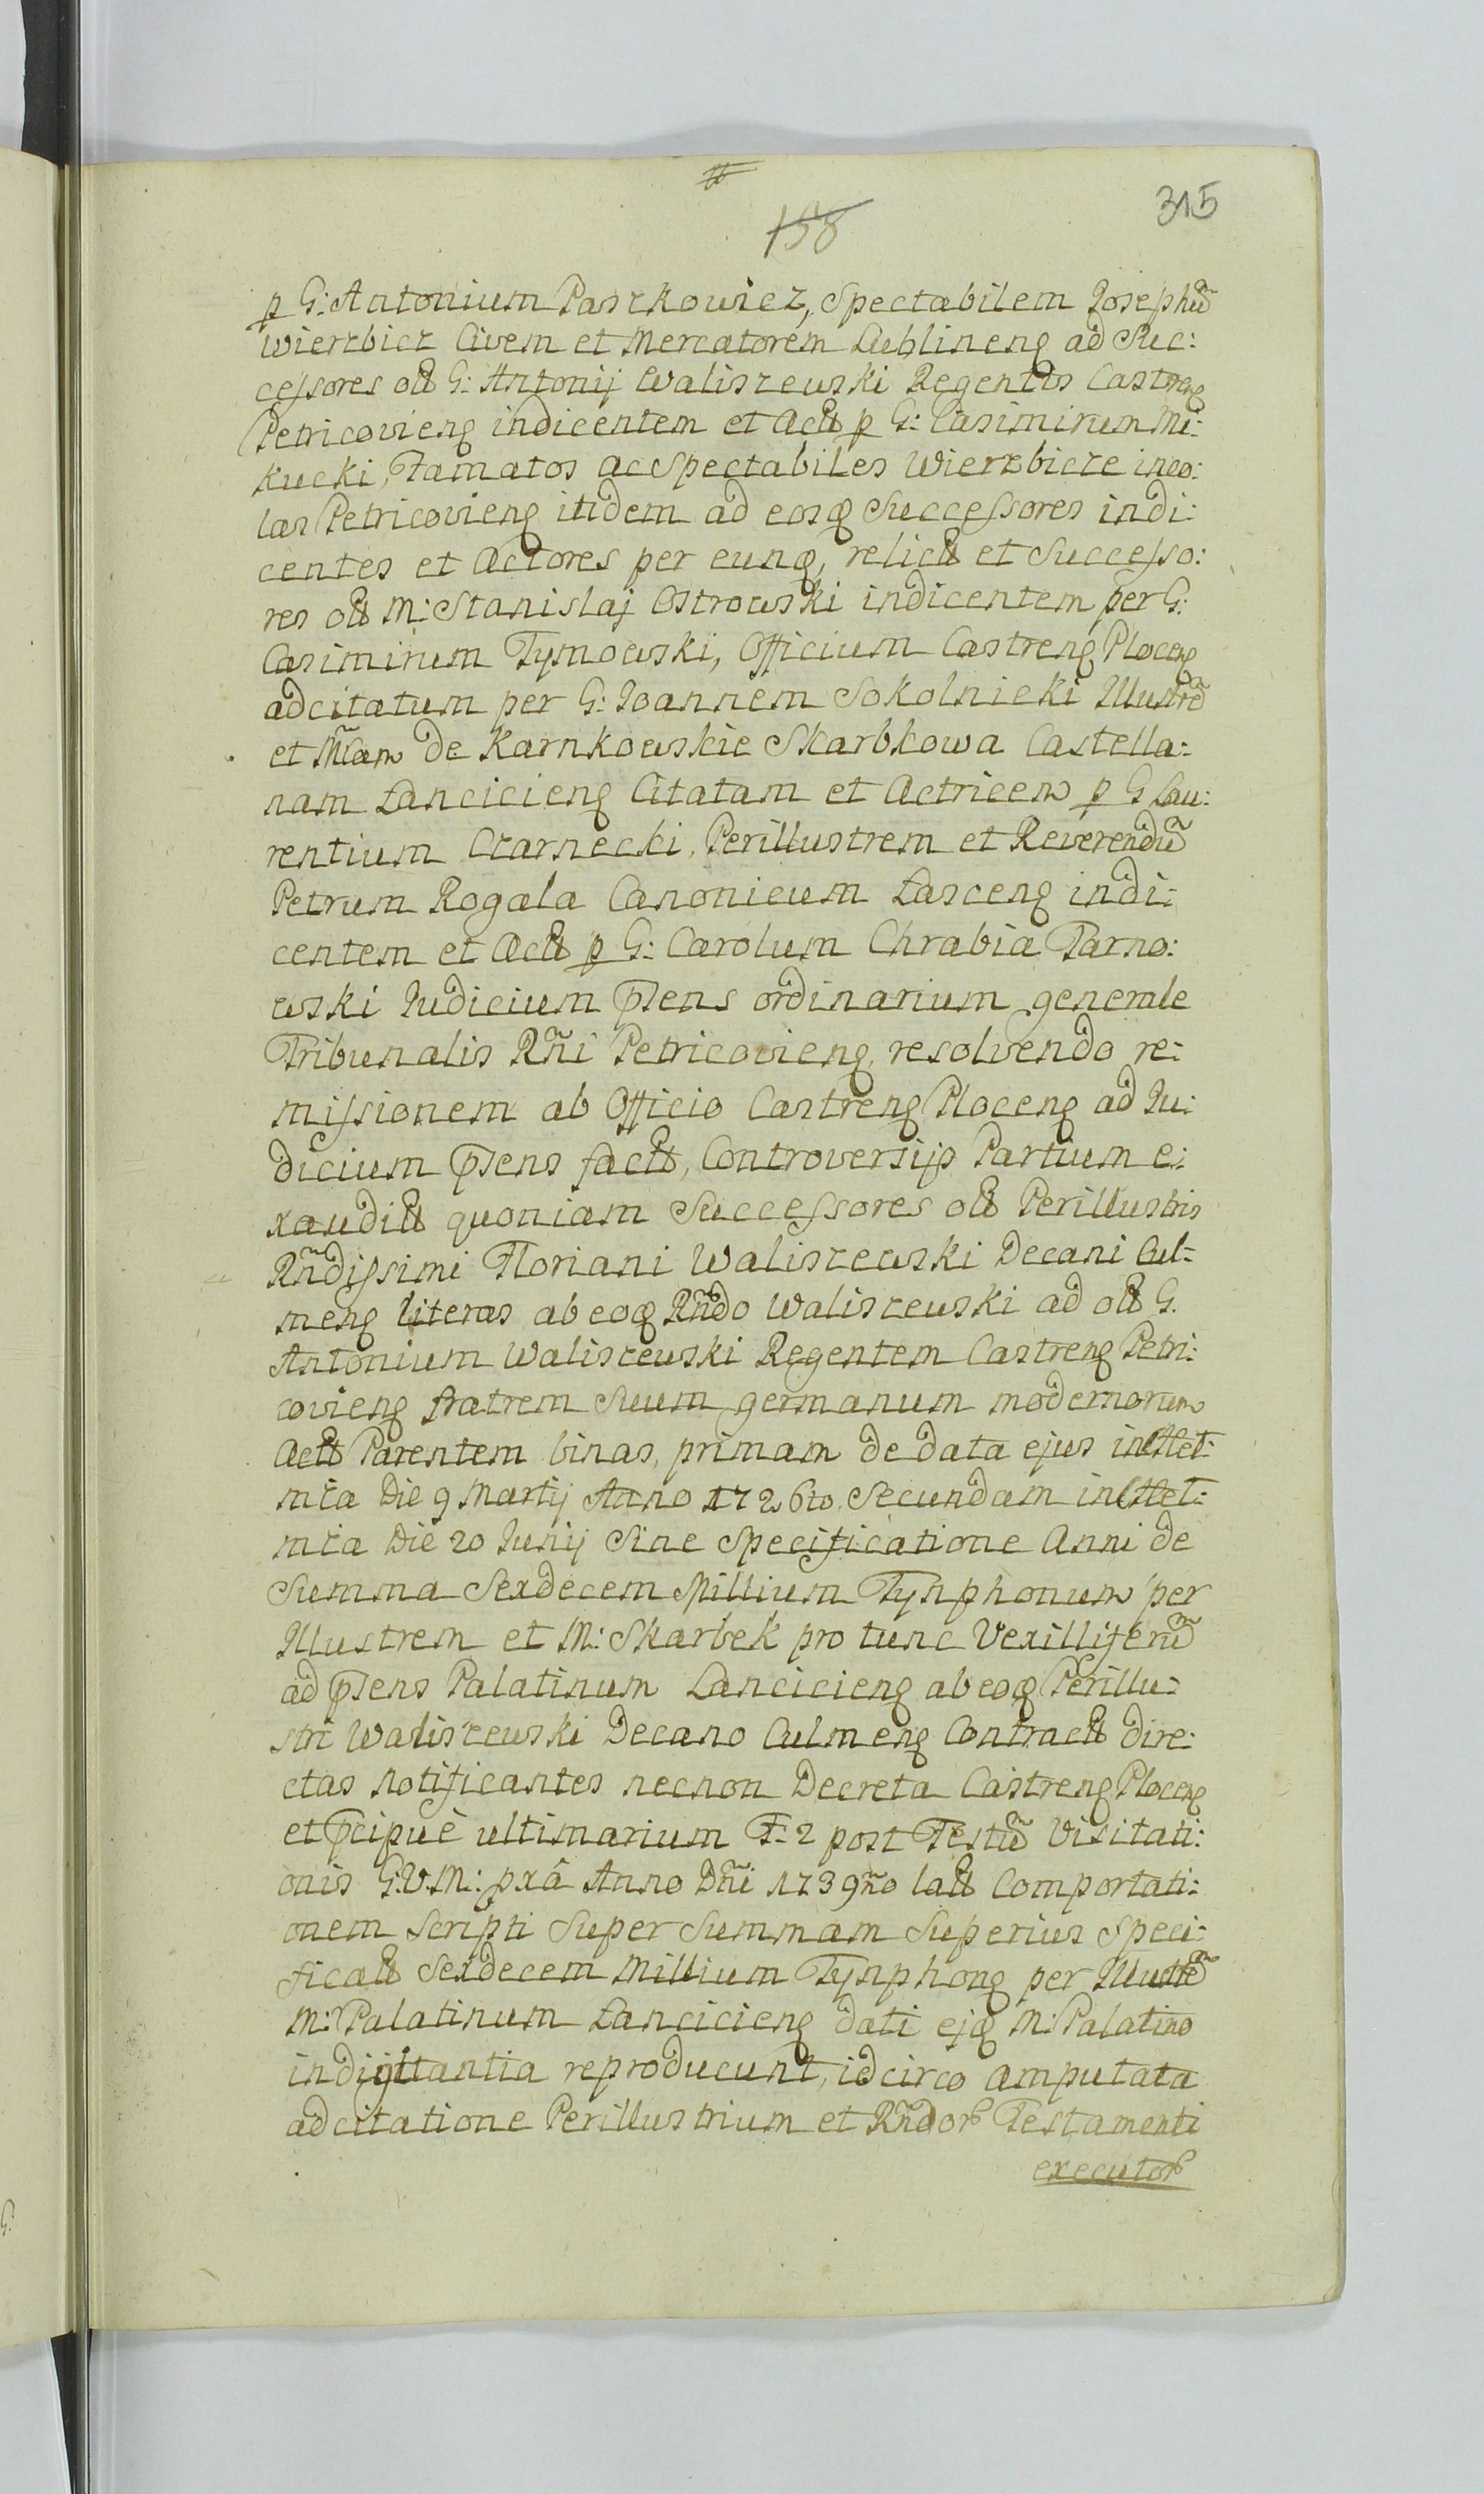 315
158
p G: Antonium Paszkowicz, Spectabilem Josephũ
Wierzbicz Civem et Mercatorem Lublinenq ad Suc:
cessores olt G: Antonij Waliszewski Regentis Castrenq
Petricovienq indicentem et Act p G: Casimirum Mi:
kucki, Famatos ac Spectabiles Wierzbicze inco:
las Petricovienq itidem ad eosq Successores indi:
centes et Actores per eunq, relict et Successo:
res olt M: Stanislaj Ostrowski indicentem per G:
Casimirum Tymowski, Officium Castrenq Plocenq
adcitatum per G: Joannem Sokolnicki Illustrẽ
et Mcam de Karnkowskie Skarbkowa Castella:
nam Lancicienq Citatam et Actricem p G Lau:
rentium Czarnecki, Perillustrem et Reverendũ
Petrum Rogala Canonicum Lascenq indi:
centem et Act p G: Carolum Chrabia Tarno:
wski Judicium psens ordinarium generale
Tribunalis Rñi Petricovienq, resolvendo re:
missionem ab Officio Castrenq Plocenq ad Ju:
dicium psens fact, Controversijs Partium e:
xaudit quoniam Successores olt Perillustris
Rñdissimi Floriani Waliszewski Decani Cul:
menq literas ab eoq Rñdo Waliszewski ad olt G.
Antonium Waliszewski Regentem Castrenq Petri:
covienq fratrem Suum germanum modernorum
Act Parentem binas, primam de data ejus in Chet:
mża Die 9 Martij Anno 1726to Secundam in Chet:
mża Die 20 Junij Sine Specificatione Anni de
Summa Sexdecem Millium Tynphonum per
Illustrem et M: Skarbek pro tunc Vexilliferũ
ad psens Palatinum Lancicienq ab eoq Perillu:
stri Waliszewski Decano Culmenq Contract dire:
ctas notificantes necnon Decreta Castrenq Plocenq
et pcipuè ultimarium F: 2 post Festũ Visitati:
onis G.V.M: pxa Anno Dñi 1739ño lat Comportati:
onem Scripti Super Summam Superius Speci:
ficat Sexdecem Millium Tynphonq per Illustrẽ
M: Palatinum Lancicienq dati ejq M: Palatino
indigitantia reproducunt, idcirco amputata
adcitatione Perillustrium et Rñdor Testamenti
executor